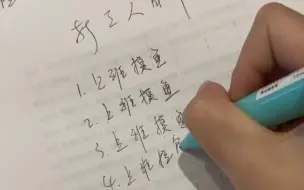 打工人
1.上班摸鱼
2.上班摸鱼
3.上班摸
4.上班摸